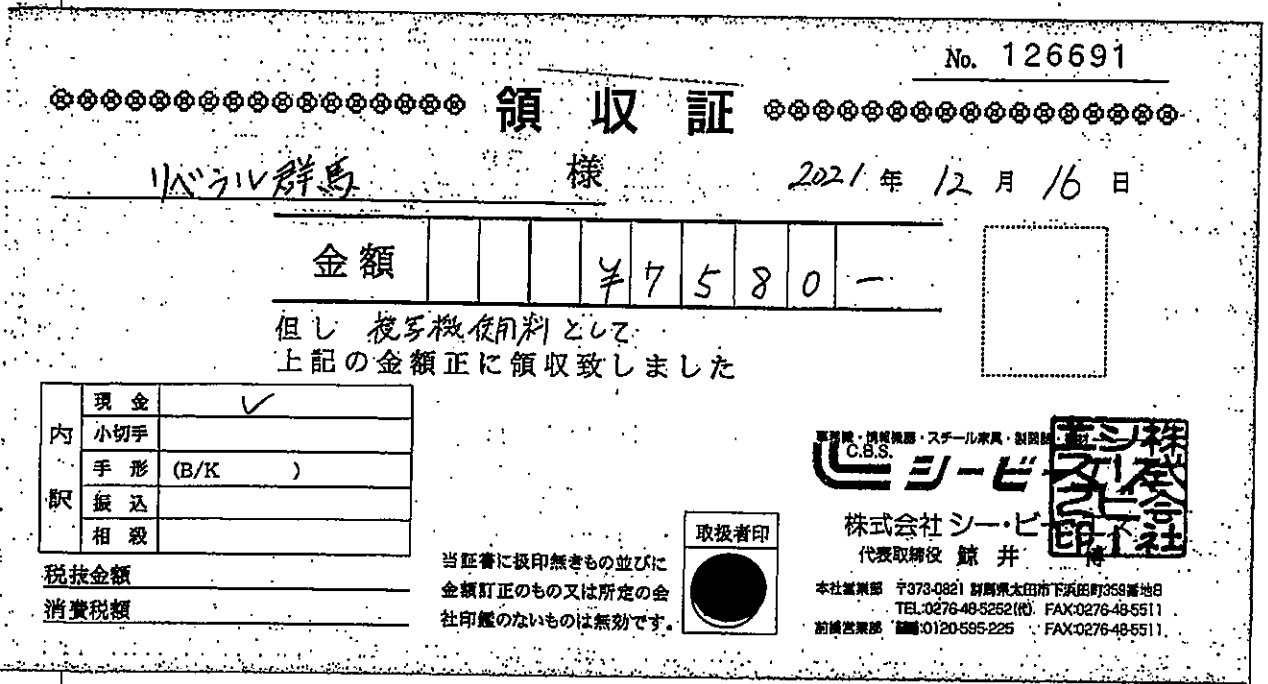 No. 126691
領収証
リベラル群馬 様
2021年 12月 16日
金額 ¥7580-
但し 複写機使用料として
上記の金額正に領収致しました
内訳
現金 ✓
小切手
手形 (B/K )
振込
相殺
税抜金額
消費税額
当証書に扱印無きもの並びに
金額訂正のもの又は所定の会
社印鑑のないものは無効です。
取扱者印
事務機・情報機器・スチール家具・製図
C.B.S.
シービー
株式会社 シー・ビー
代表取締役 鯨井 博
株式会社シービーエス之印
本社営業部 〒373-0821 群馬県太田市下浜田町359番地8
TEL:0276-48-5252(代) FAX:0276-48-5511
前橋営業部 :0120-595-225 FAX:0276-48-5511